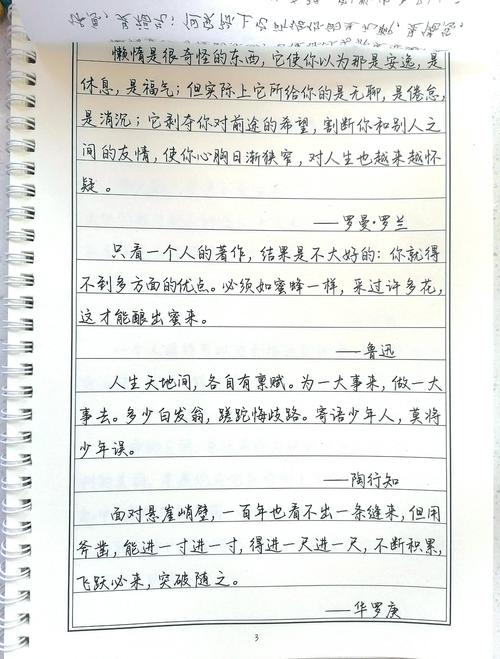 懒惰是很奇怪的东西，它使你以为那是安逸，是
休息，是福气；但实际上它所给你的是无聊，是倦怠，
是消沉；它剥夺你对前途的希望，割断你和别人之
间的友情，使你心胸日渐狭窄，对人生也越来越怀
疑。
——罗曼·罗兰
只看一个人的著作，结果是不大好的：你就得
不到多方面的优点。必须如蜜蜂一样，采过许多花，
这才能酿出蜜来。
——鲁迅
人生天地间，各自有禀赋。为一大事来，做一大
事去。多少白发翁，蹉跎悔歧路。寄语少年人，莫将
少年误。
——陶行知
面对悬崖峭壁，一百年也看不出一条缝来，但用
斧凿，能进一寸进一寸，得进一尺进一尺，不断积累，
飞跃必来，突破随之。
——华罗庚
3